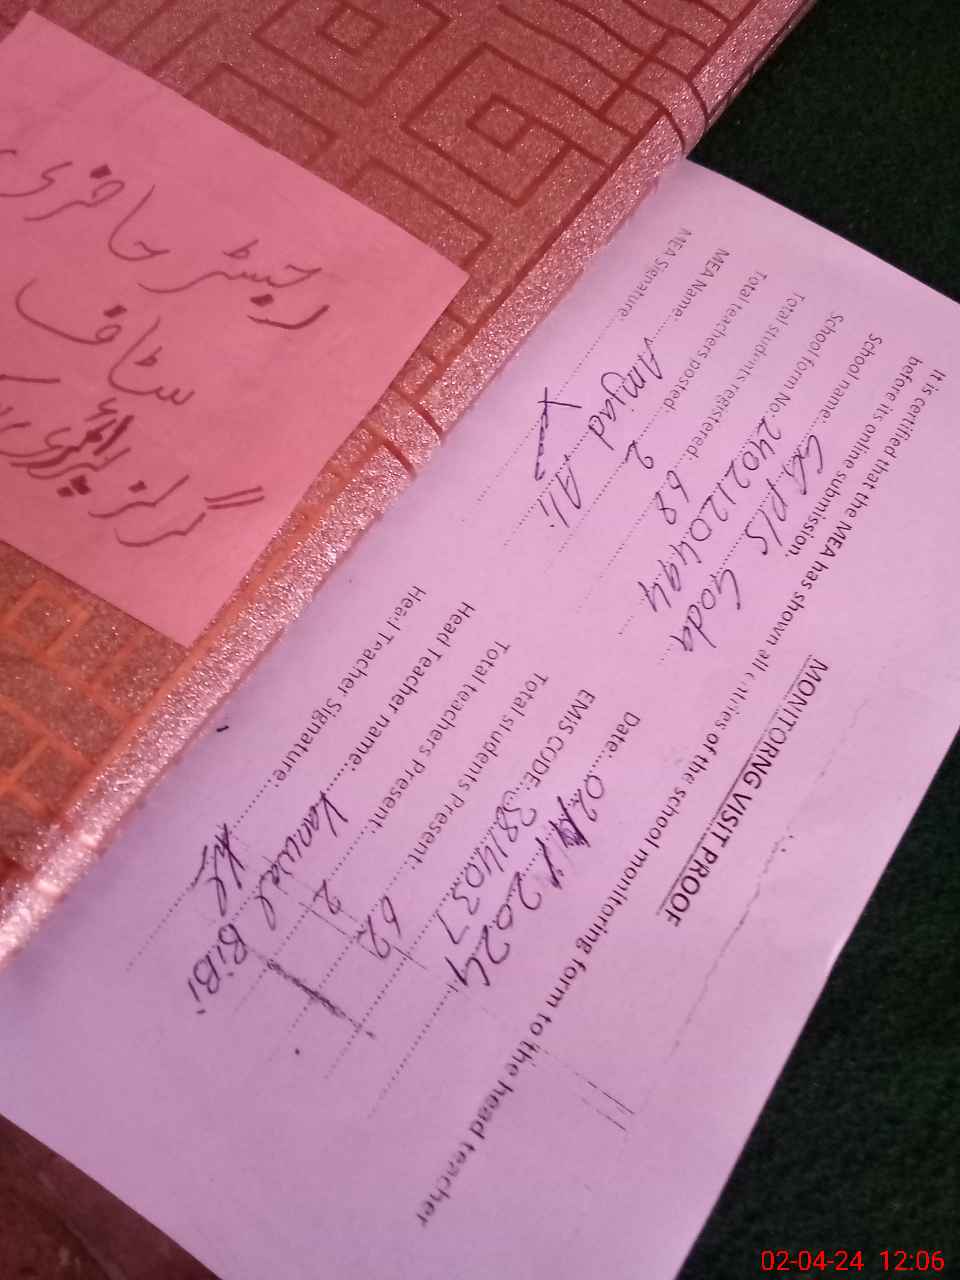 رجسٹر حاضری
سٹاف
گرلز پرائمری
MONITORING VISIT PROOF
It is certified that the MEA has shown all entries of the school monitoring form to the head teacher
before its online submission.
School name: GGP/S Goda Date: 02 2024
School form No. 2402120494 EMIS CODE: 3814037
Total students registered: 62 Total students Present: 62
Total teachers posted: 2 Total teachers Present: 2
MEA Name: Amjad Ali Head Teacher name: Kanwal BiBi
MEA Signature: Head Teacher Signature:
02-04-24 12:06